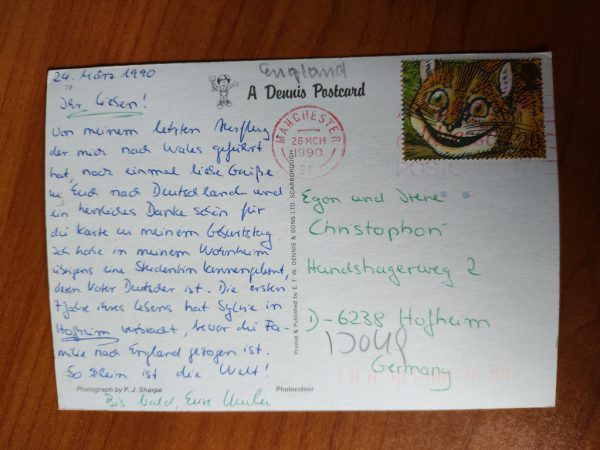 24. März 1990
78
Ihr Lieben!
Von meinem letzten Ausflug
der mich nach Wales geführt
hat, noch einmal liebe Grüße
an Euch nach Deutschland und
ein herzliches Danke schön für
die Karte zu meinem Geburtstag.
Ich habe in meinem Wohnheim
übrigens eine Studentin kennengelernt,
deren Vater Deutscher ist. Die ersten
7 Jahre ihres Lebens hat Sylvie in
Hofheim verbracht, bevor die Fa-
milie nach England gezogen ist.
So klein ist die Welt!
Photograph by P. J. Sharpe
Bis bald, Eure
England
A Dennis Postcard
MANCHESTER
26 MCH
1990
Printed & Published by E. T. W. DENNIS & SONS LTD. SCARBOROUGH
Egon und Irene
Christophori
Hundshagerweg 2
D-6238 Hofheim
Germany
Photocolour